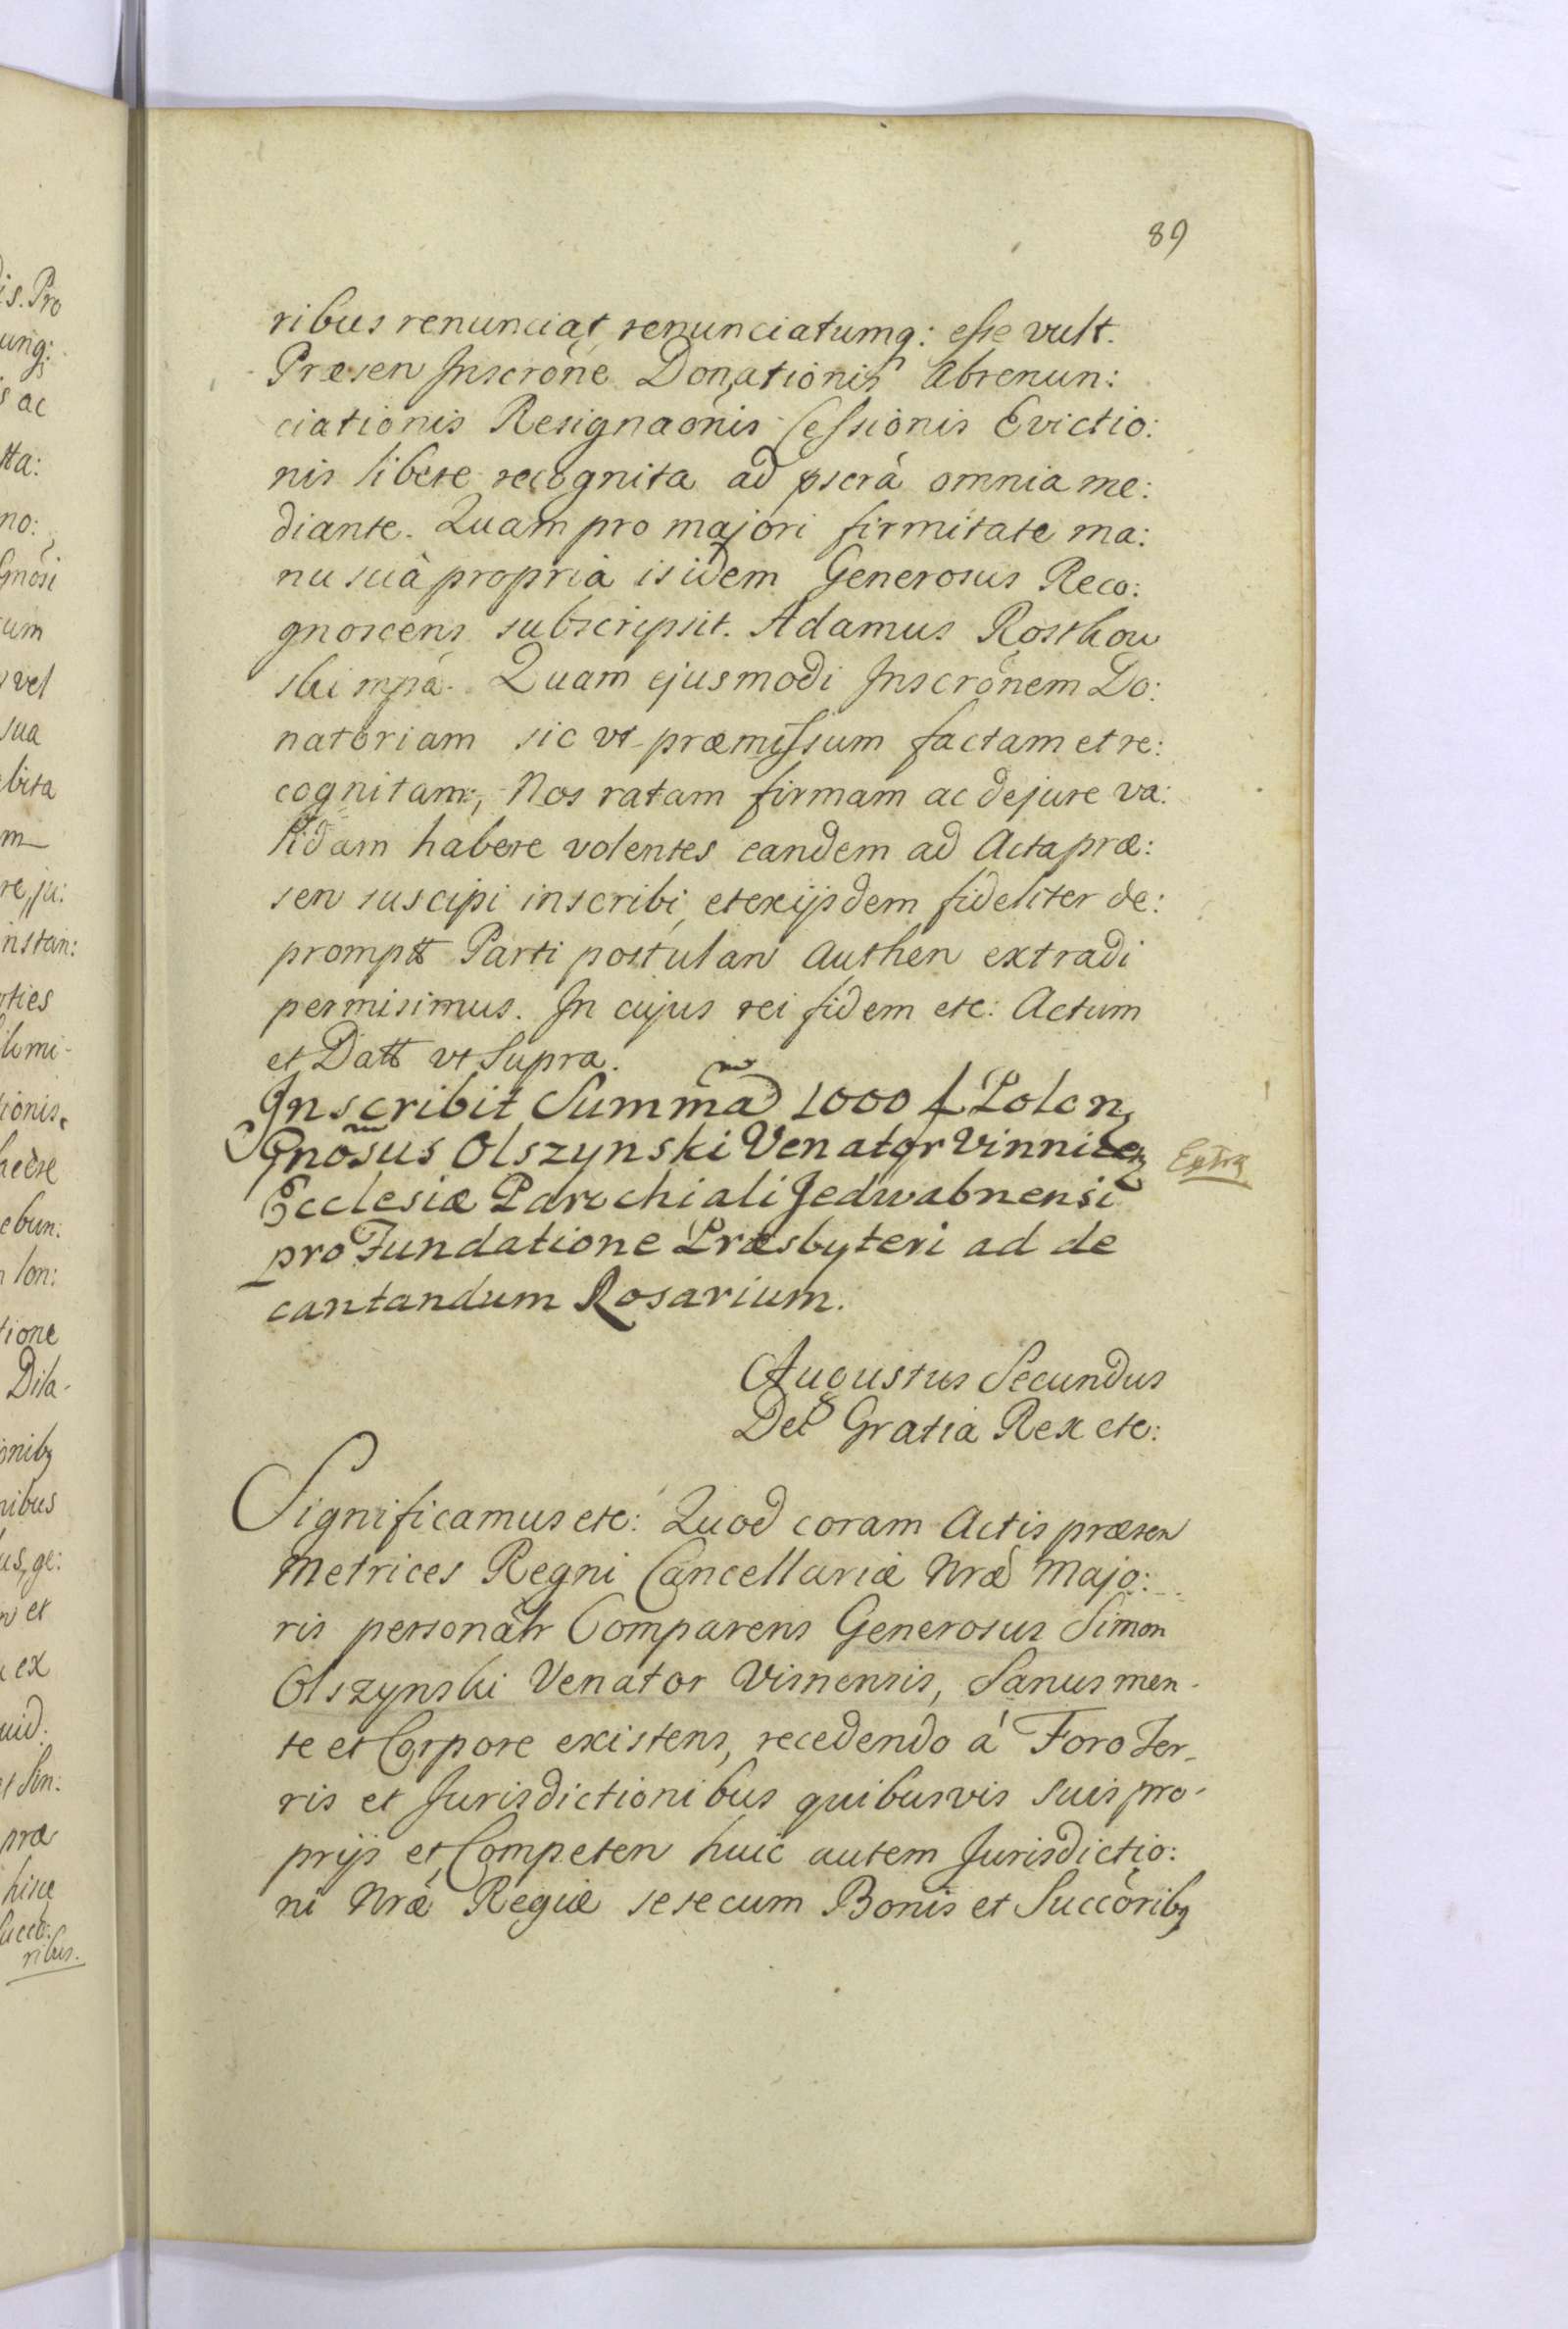 89
ribus renunciat, renunciatumq: esse vult.
Præsen Inscrõne Donationis Abrenun:
ciationis Resignaõnis Cessionis Evictio:
nis libere recognita ad pscrà omnia me:
diante. Quam pro majori firmitate ma:
nu suâ propriâ isidem Generosus Reco:
gnoscens subscripsit. Adamus Rostkow
ski mpa. Quam ejusmodi Inscrõnem Do:
natoriam sic vt præmissum factam et re:
cognitam, Nos ratam firmam ac dejure va:
lidam habere volentes eandem ad Acta præ:
sen suscipi inscribi, et exijsdem fideliter de:
prompt Parti postulan Authen extradi
permisimus. In cujus rei fidem etc: Actum
et Datt vt Supra.
Inscribit Summã 1000 f Polon
Gnosus Olszynski Venator Vinnicen
Ecclesiæ Parochiali Jedwabnensi
pro Fundatione Præsbyteri ad de
cantandum Rosarium.
Extra
Augustus Secundus
Dei Gratia Rex etc:
Significamus etc: Quod coram Actis præsen
Metrices Regni Cancellariæ Nræ Majo:
ris personalr Comparens Generosus Simon
Olszynski Venator Visnensis, Sanus men-
te et Corpore existens, recedendo á Foro Ter-
ris et Jurisdictionibus quibusvis suis pro-
prijs et Competen huic autem Jurisdictio:
ni Nræ Regiæ sese cum Bonis et Succõribq